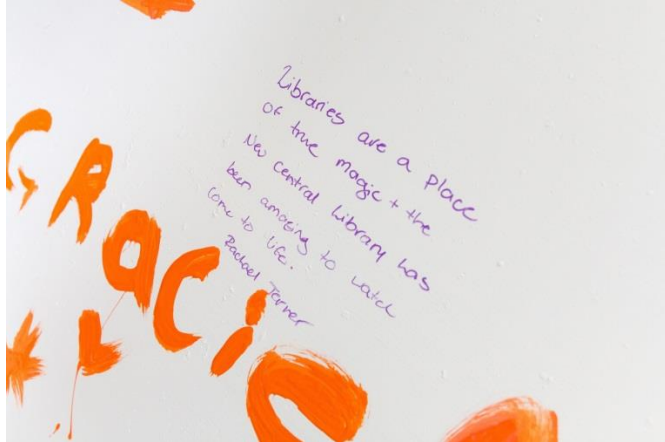 Libraries are a place
of true magic + the
New central library has
been amazing to watch
come to life.
Rachael Turner
GRACIE